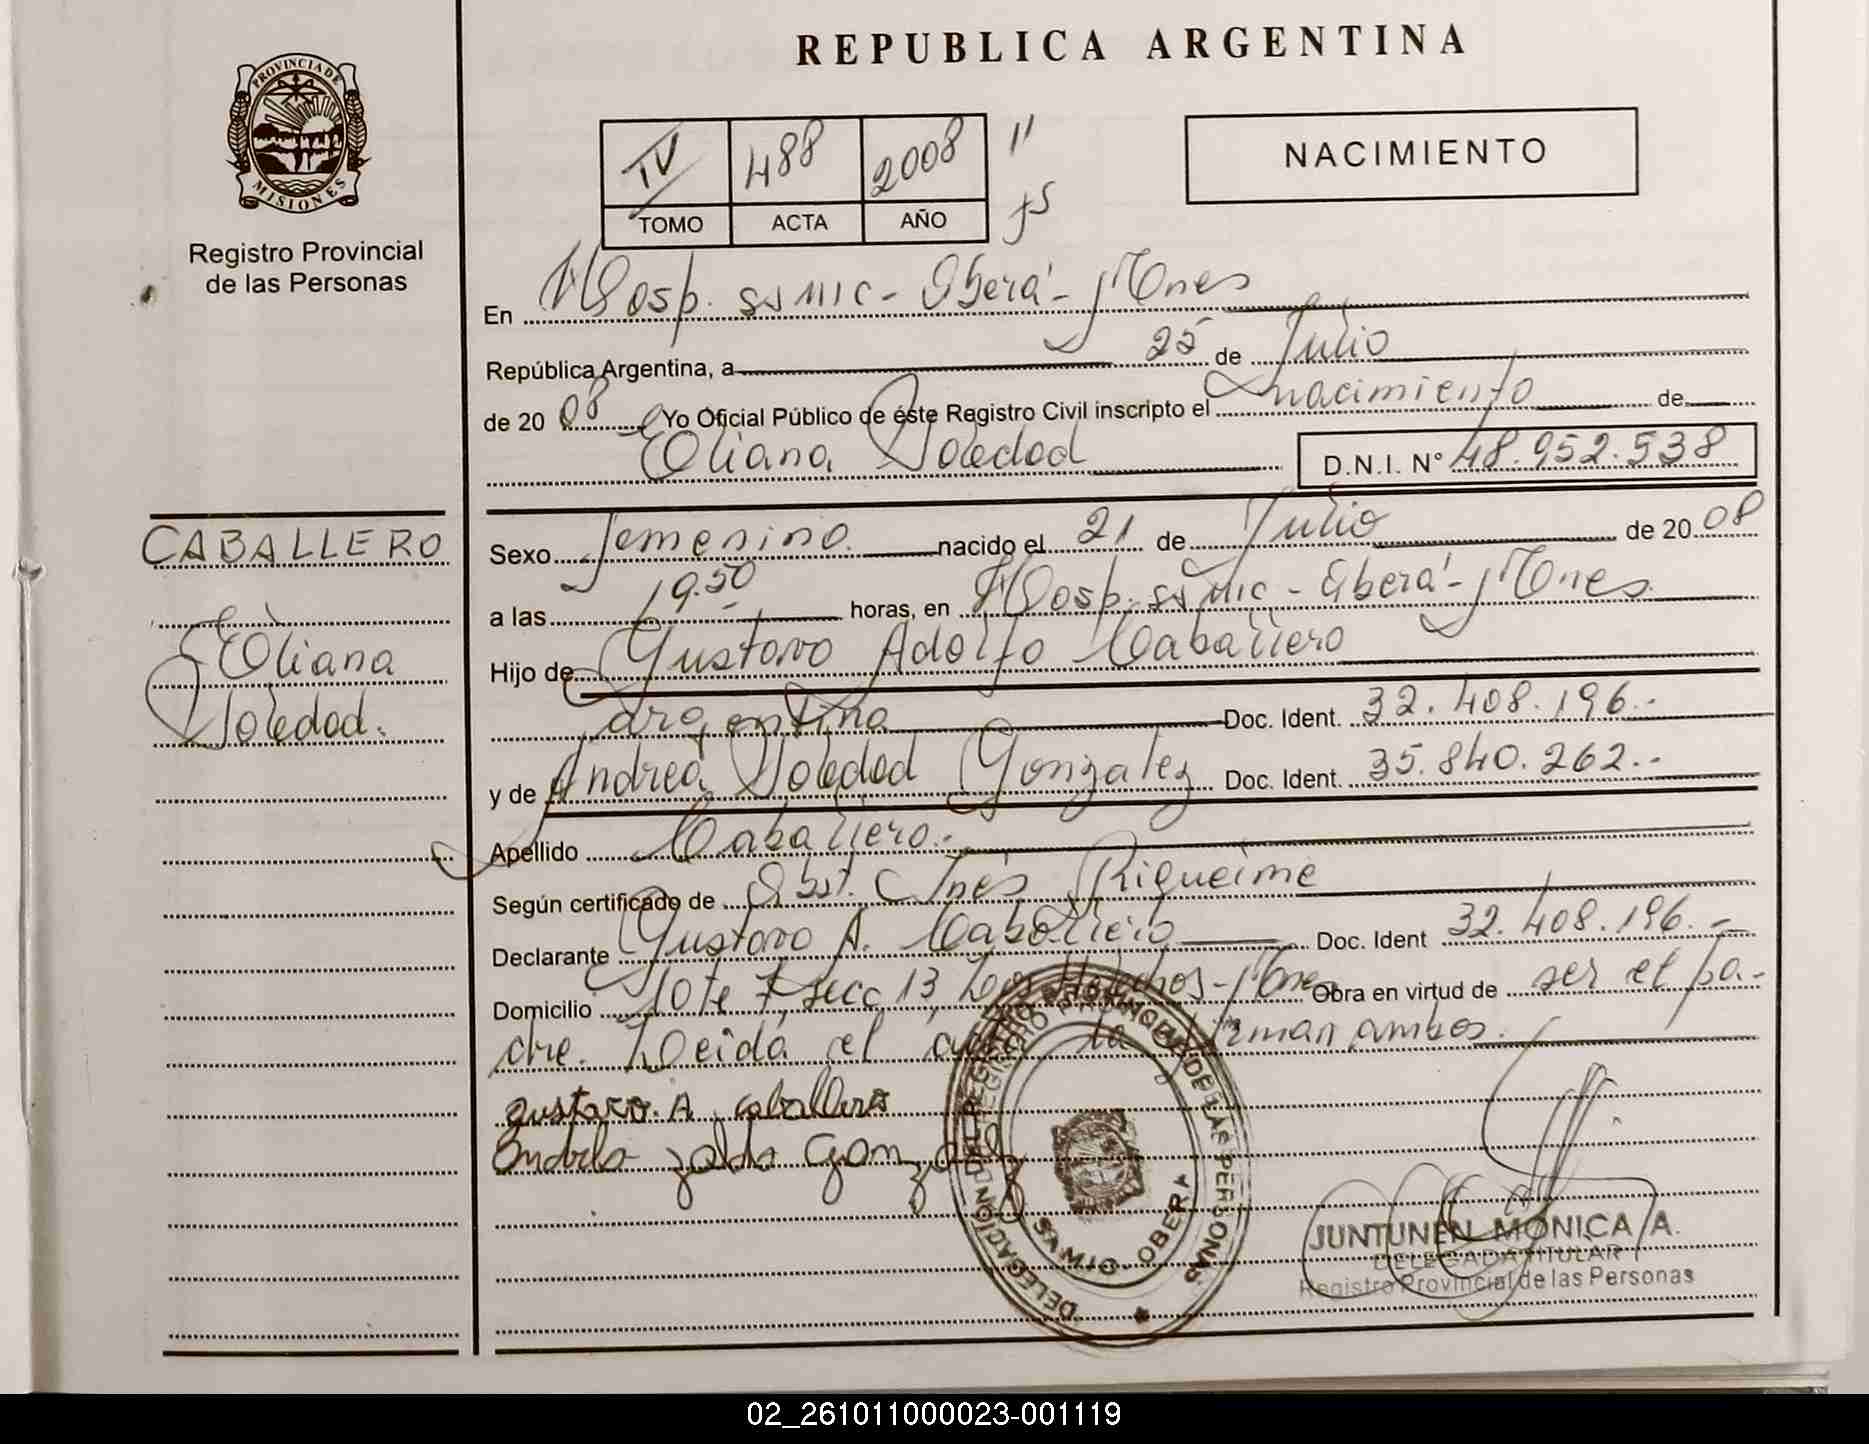 REPUBLICA ARGENTINA
PROVINCIA DE
MISIONES
Registro Provincial
de las Personas
IV 488 2008 "
TOMO ACTA AÑO
NACIMIENTO
En Hosp. ss mic - Oberá - Mnes
República Argentina, a 25 de Julio
de 20 08 Yo Oficial Público de éste Registro Civil inscripto el nacimiento de
Eliana Soledad D.N.I. N° 48.952.538
CABALLERO
Eliana
Soledad.
Sexo femenino. nacido el 21 de Julio de 20 08
a las 19.50 horas, en Hosp. ss mic - Oberá - Mnes
Hijo de Gustavo Adolfo Caballero
argentina Doc. Ident. 32.408.196.-
y de Andrea Soledad Gonzalez Doc. Ident. 35.840.262.-
Apellido Caballero.-
Según certificado de Obst. Inés Riqueime
Declarante Gustavo A. Caballero Doc. Ident 32.408.196.-
Domicilio lote 7 secc 13 Los Helechos - Mnes Obra en virtud de ser el pa-
dre. Leida el acta la firman ambos.
gustavo. A. caballero
DELEGACIÓN DEL REGISTRO PROVINCIAL DE LAS PERSONAS
SAMIC - OBERA
JUNTUNEN MONICA A.
DELEGADA TITULAR
Registro Provincial de las Personas
02_261011000023-001119